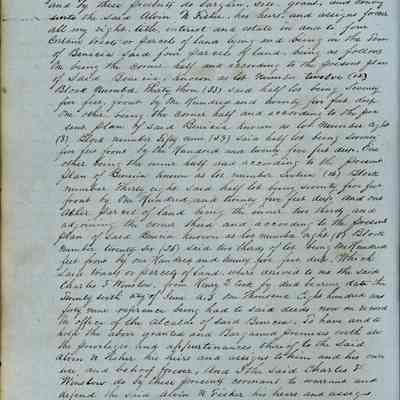 and by these presents do bargain, sell, grant, and convey
unto the said Alvin W Fisher, his heirs, and assigns forever
all my right, title, interest and estate in and to four
certain tracts or parcels of land lying and being in the Town
of Benicia Said four parcels of land, being as follows
One being the corner half and according to the present plan
of Said Benicia, known as lot Number twelve (12)
Block Number Thirty three (33) said half lot being Seventy
five feet, front by One Hundred and twenty five feet deep
One other being the corner half and according to the pre
sent plan of said Benicia known as lot Number eight
(8) Block number fifty nine (59) said half lot being Seventy
five feet front by One Hundred and twenty five feet deep. One
other being the inner half and according to the present
plan of Benicia known as lot number Sixteen (16) Block
number Thirty eight said half lot being seventy five feet
front by One Hundred and twenty five feet deep and one
other parcel of land being the inner two thirds and
adjoining the corner third and according to the present
plan of Said Benicia known as lot number eight (8) Block
number twenty Six (26) said two thirds of lot being One Hundred
feet front by one Hundred and twenty five feet deep. Which
said tracts or parcels of land, were derived to me the said
Charles F Winslow, from Henry D Cook by deed bearing date the
Twenty with day of June A.D. One Thousand Eight hundred and
forty nine reference being had to said deeds now on record
in office of the Alcalde of said Benicia. To have and to
hold the above granted and Bargained premises with all
the privileges and appurtenances thereof to the Said
Alvin W Fisher his heirs and assigns to him and his own
use, and behoof forever, And I the Said Charles F
Winslow do by these presents covenant to warrant and
defend the said Alvin W Fisher his heirs and assigns